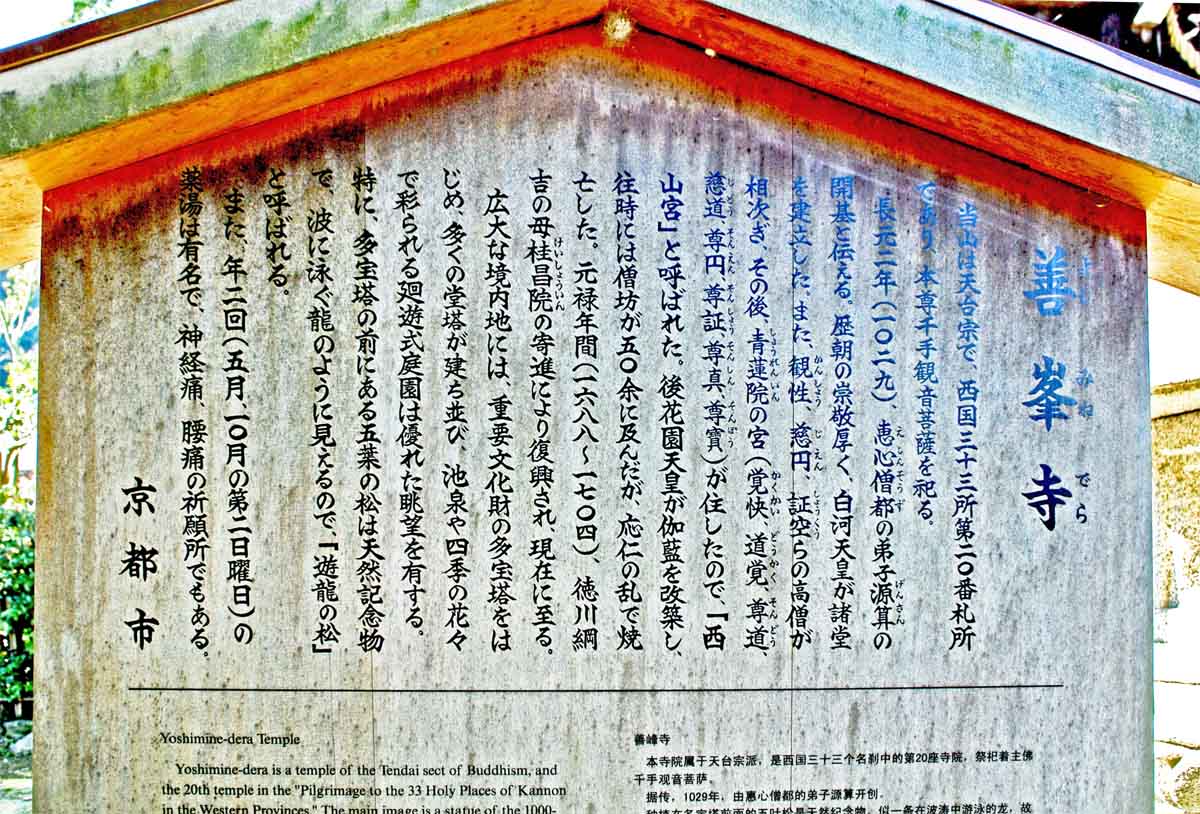 善峯寺
よしみねでら
当山は天台宗で、西国三十三所第二〇番札所
であり、本尊千手観音菩薩を祀る。
長元二年（一〇二九）、恵心僧都の弟子源算の
開基と伝える。歴朝の崇敬厚く、白河天皇が諸堂
を建立した。また、観性、慈円、証空らの高僧が
相次ぎ、その後、青蓮院の宮（覚快、道覚、尊道、
慈道、尊円、尊証、尊真、尊寳）が住したので、「西
山宮」と呼ばれた。後花園天皇が伽藍を改築し、
往時には僧坊が五〇余に及んだが、応仁の乱で焼
亡した。元禄年間（一六八八〜一七〇四）、徳川綱
吉の母桂昌院の寄進により復興され、現在に至る。
広大な境内地には、重要文化財の多宝塔をは
じめ、多くの堂塔が建ち並び、池泉や四季の花々
で彩られる廻遊式庭園は優れた眺望を有する。
特に、多宝塔の前にある五葉の松は天然記念物
で、波に泳ぐ龍のように見えるので、「遊龍の松」
と呼ばれる。
また、年二回（五月、一〇月の第二日曜日）の
薬湯は有名で、神経痛、腰痛の祈願所でもある。
京都市
Yoshimine-dera Temple
Yoshimine-dera is a temple of the Tendai sect of Buddhism, and
the 20th temple in the "Pilgrimage to the 33 Holy Places of Kannon
in the Western Provinces." The main image is a statue of the 1000-
善峰寺
本寺院属于天台宗派，是西国三十三个名刹中的第20座寺院，祭祀着主佛
千手观音菩萨。
据传，1029年，由惠心僧都的弟子源算开创。
种植在多宝塔前面的五叶松是天然纪念物，似一条在波涛中游泳的龙，故